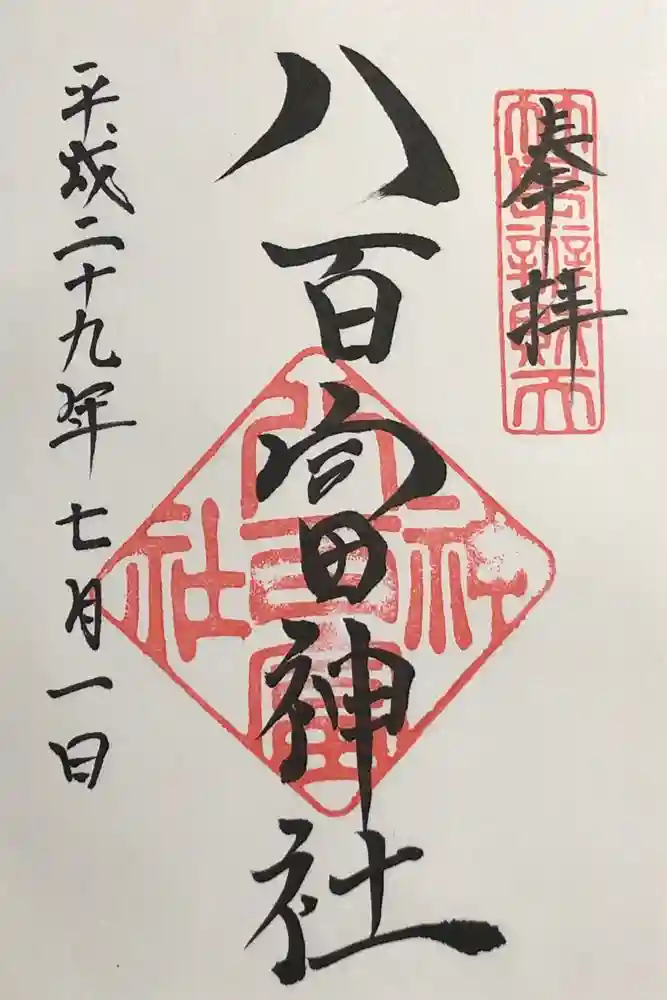 奉拝
竹島辨財天
八百富神社
八百富神社
平成二十九年七月一日